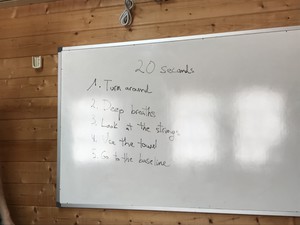 20 seconds
1. Turn around
2. Deep breaths
3. Look at the strings
4. Use the towel
5. Go to the baseline